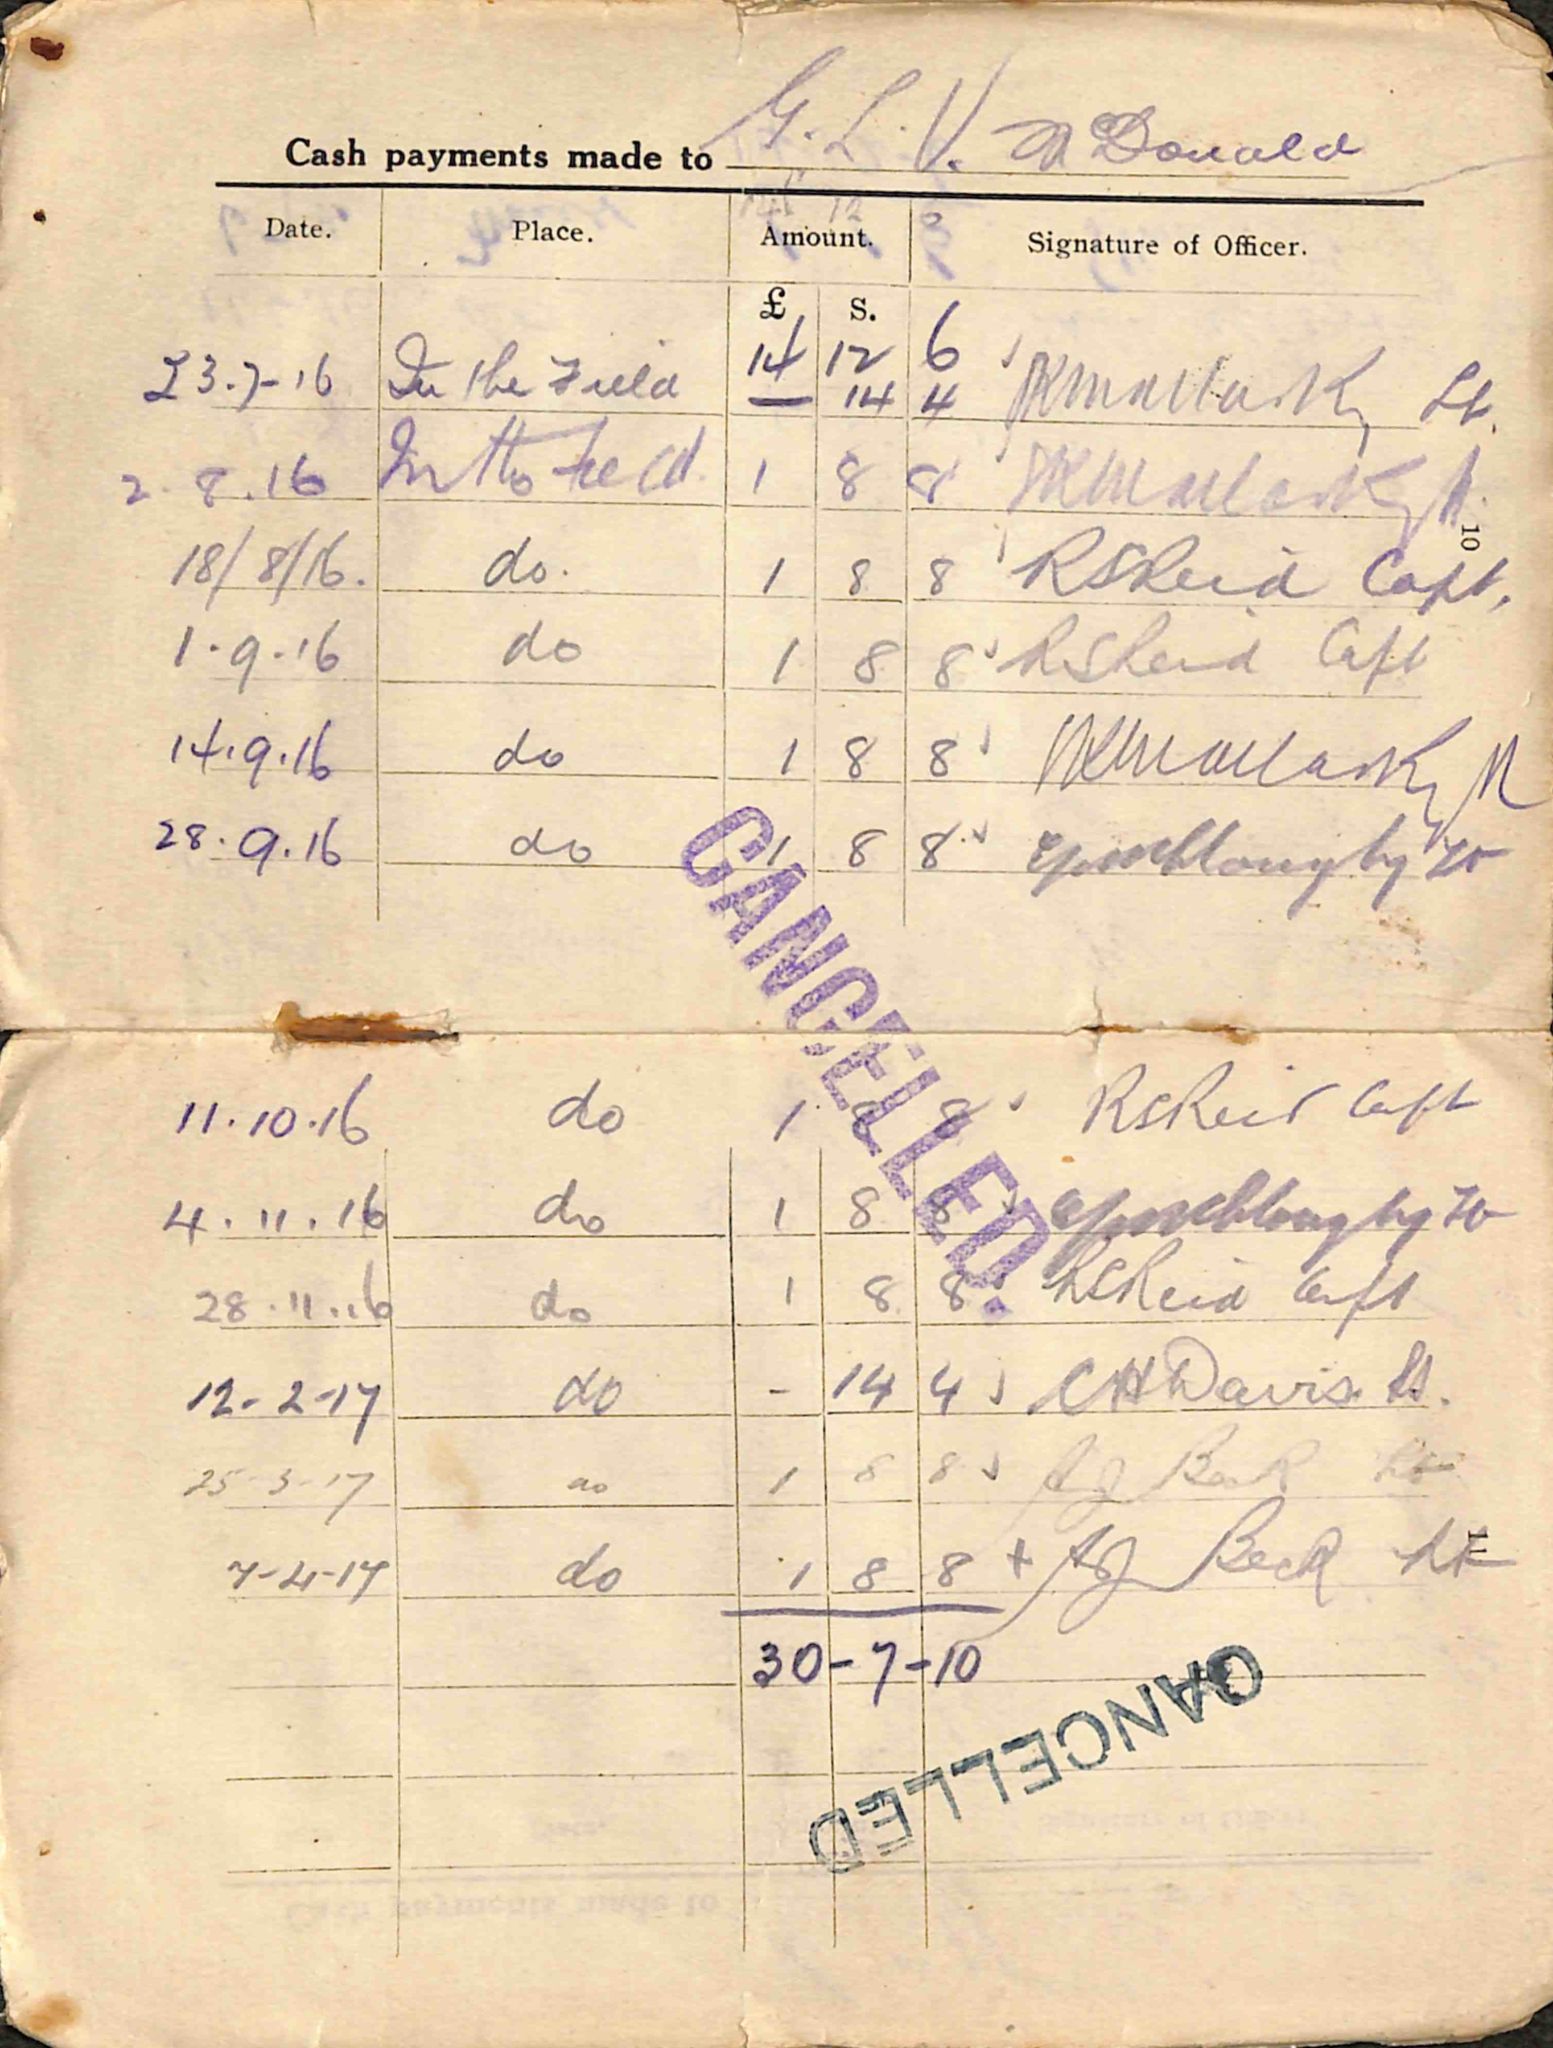 Cash payments made to G. L. V. McDonald
Date. Place. Amount. Signature of Officer.
£ S.
14 12 6
23.7-16 In the Field — 14 4 Lt.
2.8.16 In the field. 1 8 8
10
18/8/16. do. 1 8 8 RSReid Capt.
1.9.16 do 1 8 8 RSReid Capt
14.9.16 do 1 8 8
28.9.16 do 1 8 8
CANCELLED.
11.10.16 do 1 8 8 RSReid Capt
4.11.16 do 1 8 8
28.11.16 do 1 8 8 RSReid Capt
12-2-17 do - 14 4 CHDavis Lt.
25-3-17 do 1 8 8 AJ Beck Lt
11
7-4-17 do 1 8 8 + AJ Beck Lt
30-7-10
CANCELLED